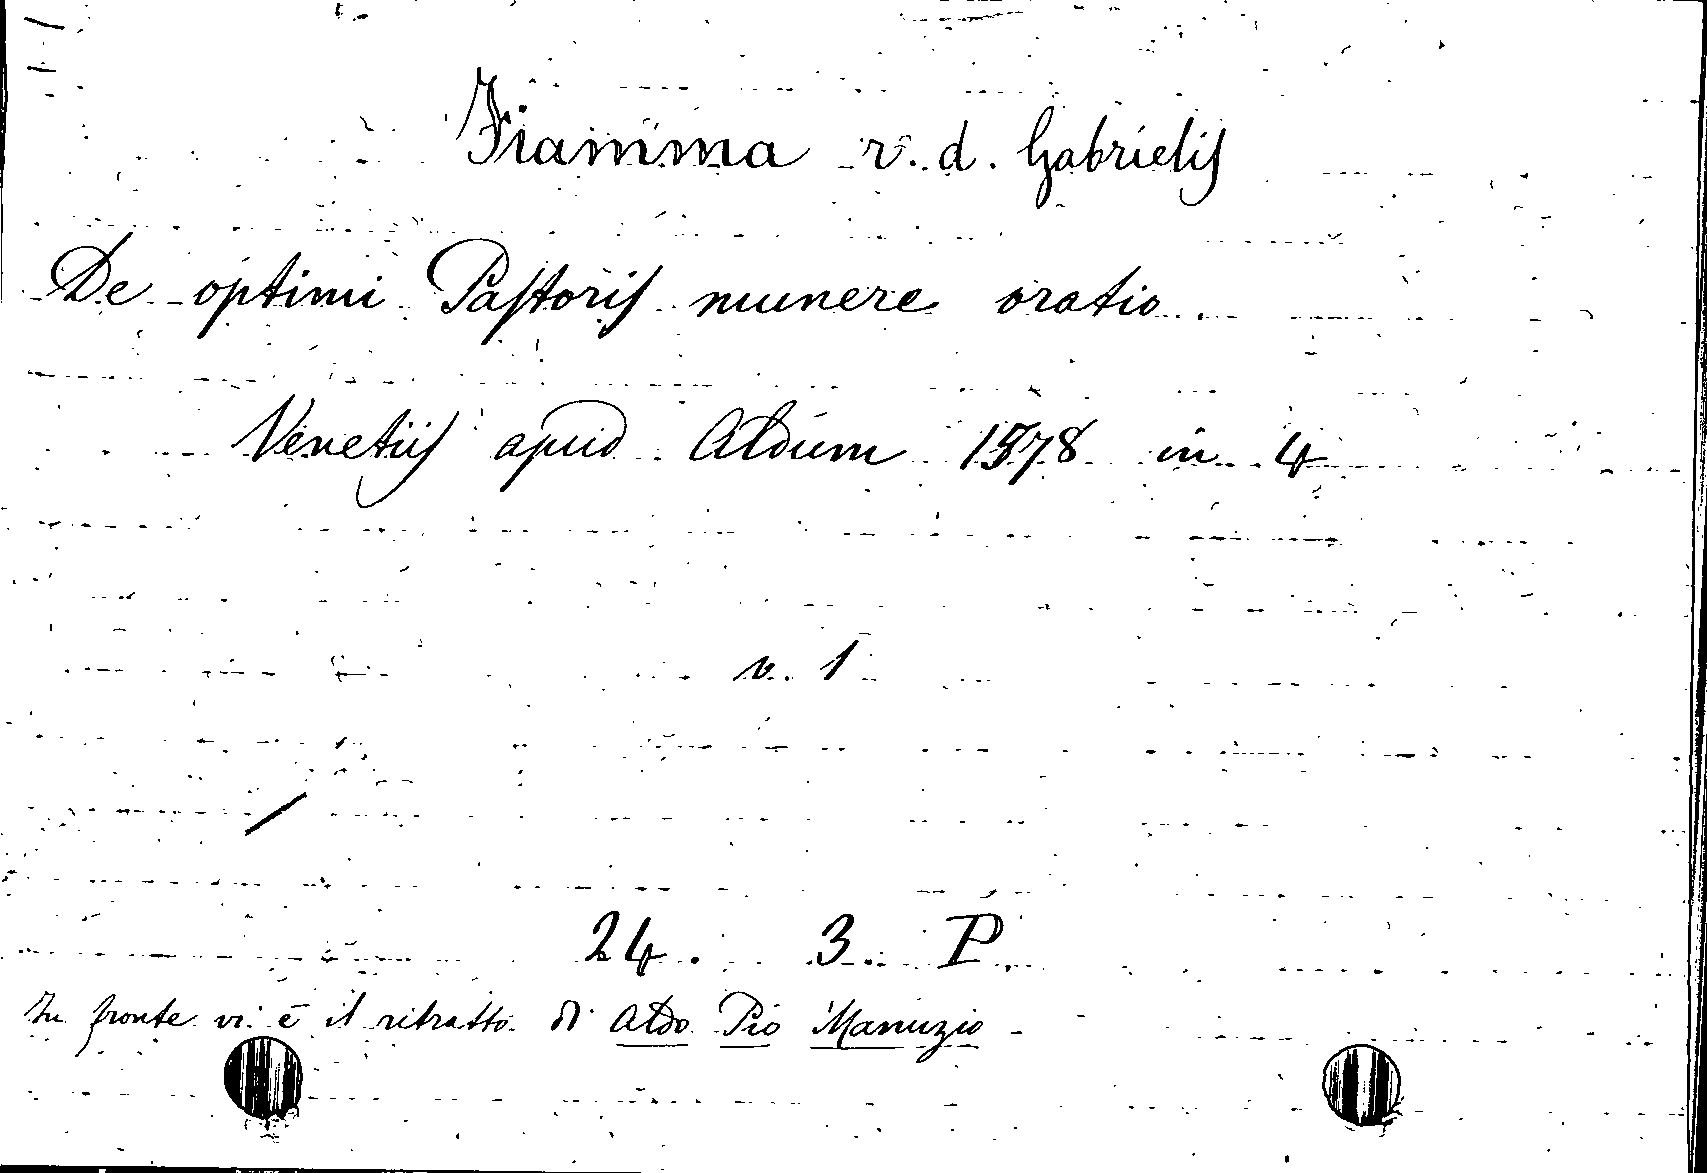 Fiamma r. d. Gabrielis
De optimi Pastoris munere oratio.
Venetiis apud Aldum 1578 in 4
v. 1
24. 3. P.
In fronte vi è il ritratto di Aldo Pio Manuzio